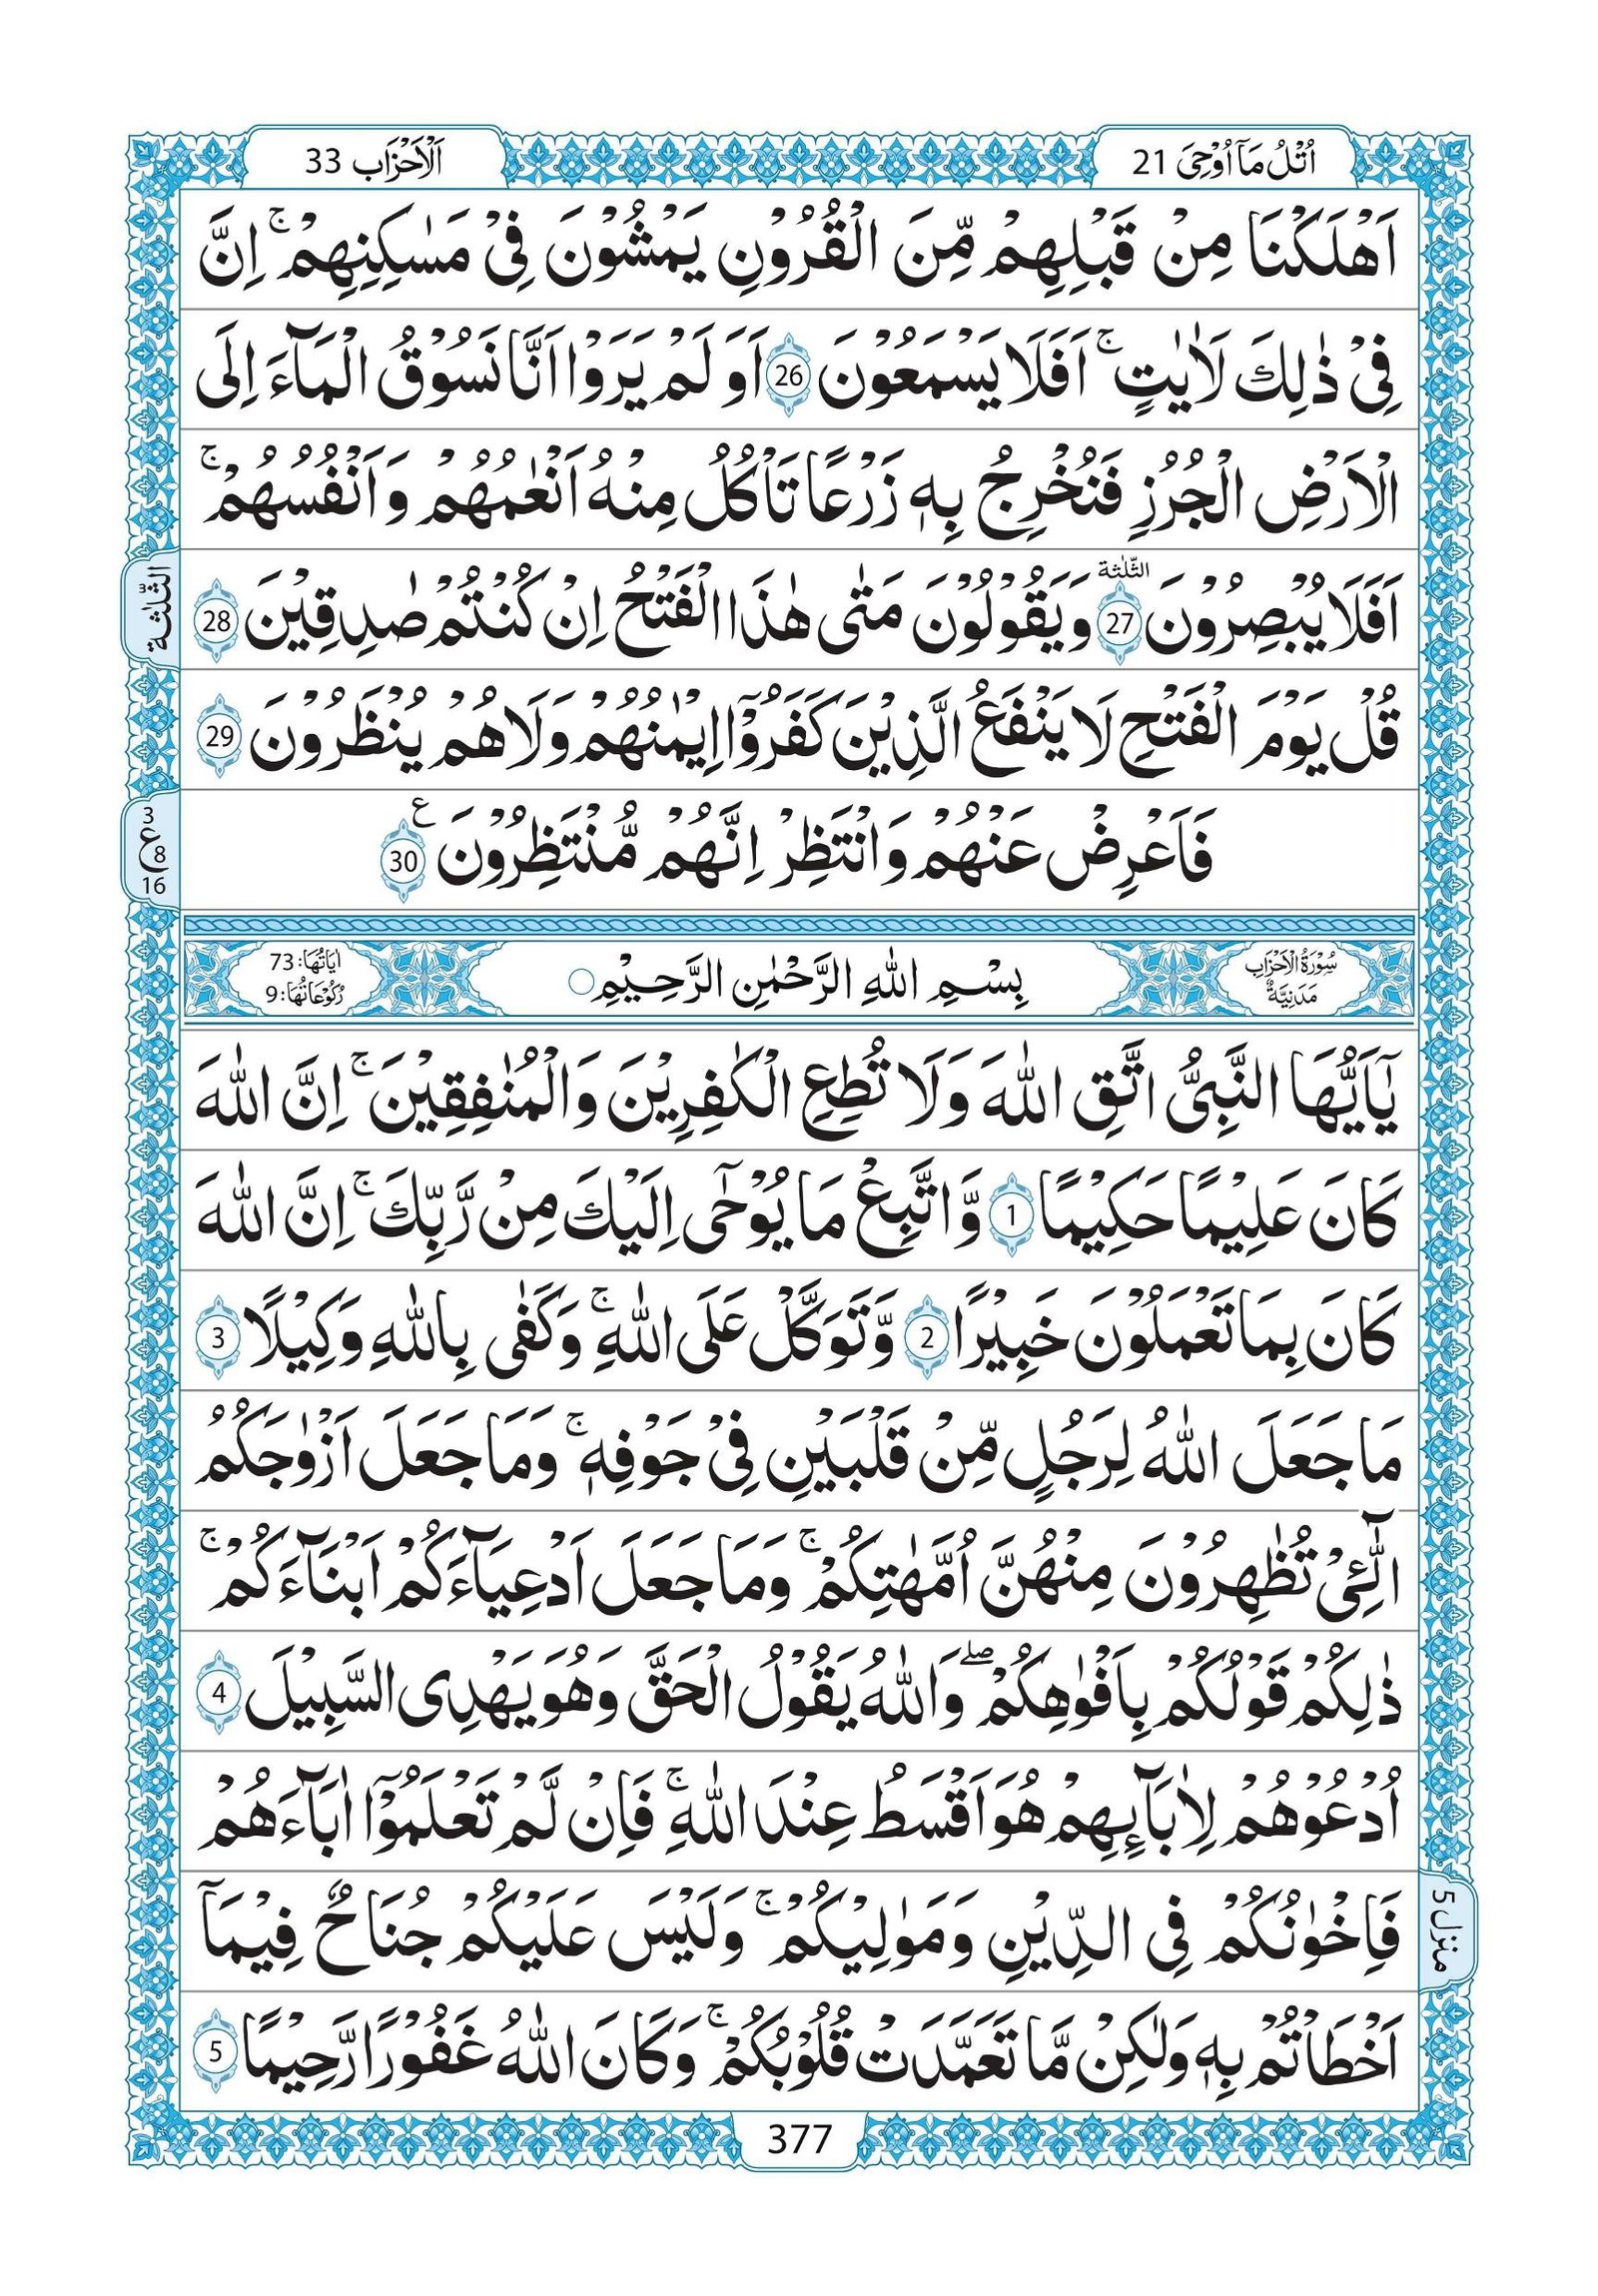 اُتْلُ مَاۤ اُوْحِیَ 21
اَلْاَحْزَاب 33
اَهْلَكْنَا مِنْ قَبْلِهِمْ مِّنَ الْقُرُوْنِ یَمْشُوْنَ فِیْ مَسٰكِنِهِمْ ۚ اِنَّ
فِیْ ذٰلِكَ لَاٰیٰتٍ ۚ اَفَلَا یَسْمَعُوْنَ 26 اَوَ لَمْ یَرَوْا اَنَّا نَسُوْقُ الْمَآءَ اِلَی
الْاَرْضِ الْجُرُزِ فَنُخْرِجُ بِهٖ زَرْعًا تَاْكُلُ مِنْهُ اَنْعٰمُهُمْ وَ اَنْفُسُهُمْ ۚ
اَفَلَا یُبْصِرُوْنَ 27 الثّلٰثة وَ یَقُوْلُوْنَ مَتٰی هٰذَا الْفَتْحُ اِنْ كُنْتُمْ صٰدِقِیْنَ 28
الثّلٰثة
قُلْ یَوْمَ الْفَتْحِ لَا یَنْفَعُ الَّذِیْنَ كَفَرُوْۤا اِیْمٰنُهُمْ وَلَا هُمْ یُنْظَرُوْنَ 29
فَاَعْرِضْ عَنْهُمْ وَانْتَظِرْ اِنَّهُمْ مُّنْتَظِرُوْنَ ع 30
3
ع 8
16
سُوْرَةُ الْاَحْزَابِ
مَدَنِیَّةٌ
بِسْمِ اللهِ الرَّحْمٰنِ الرَّحِیْمِ
اٰیَاتُهَا: 73
رُكُوْعَاتُهَا: 9
یٰۤاَیُّهَا النَّبِیُّ اتَّقِ اللّٰهَ وَلَا تُطِعِ الْكٰفِرِیْنَ وَالْمُنٰفِقِیْنَ ۚ اِنَّ اللّٰهَ
كَانَ عَلِیْمًا حَكِیْمًا 1 وَّاتَّبِعْ مَا یُوْحٰۤی اِلَیْكَ مِنْ رَّبِّكَ ۚ اِنَّ اللّٰهَ
كَانَ بِمَا تَعْمَلُوْنَ خَبِیْرًا 2 وَّتَوَكَّلْ عَلَی اللّٰهِ ۚ وَكَفٰی بِاللّٰهِ وَكِیْلًا 3
مَا جَعَلَ اللّٰهُ لِرَجُلٍ مِّنْ قَلْبَیْنِ فِیْ جَوْفِهٖ ۚ وَمَا جَعَلَ اَزْوٰجَكُمُ
الّٰٓئِیْ تُظٰهِرُوْنَ مِنْهُنَّ اُمَّهٰتِكُمْ ۚ وَمَا جَعَلَ اَدْعِیَآءَكُمْ اَبْنَآءَكُمْ ۚ
ذٰلِكُمْ قَوْلُكُمْ بِاَفْوٰهِكُمْ ۖ وَاللّٰهُ یَقُوْلُ الْحَقَّ وَهُوَ یَهْدِی السَّبِیْلَ 4
اُدْعُوْهُمْ لِاٰبَآىِٕهِمْ هُوَ اَقْسَطُ عِنْدَ اللّٰهِ ۚ فَاِنْ لَّمْ تَعْلَمُوْۤا اٰبَآءَهُمْ
فَاِخْوٰنُكُمْ فِی الدِّیْنِ وَمَوٰلِیْكُمْ ۚ وَلَیْسَ عَلَیْكُمْ جُنَاحٌ فِیْمَاۤ
منزل 5
اَخْطَاْتُمْ بِهٖ وَلٰكِنْ مَّا تَعَمَّدَتْ قُلُوْبُكُمْ ۚ وَكَانَ اللّٰهُ غَفُوْرًا رَّحِیْمًا 5
377